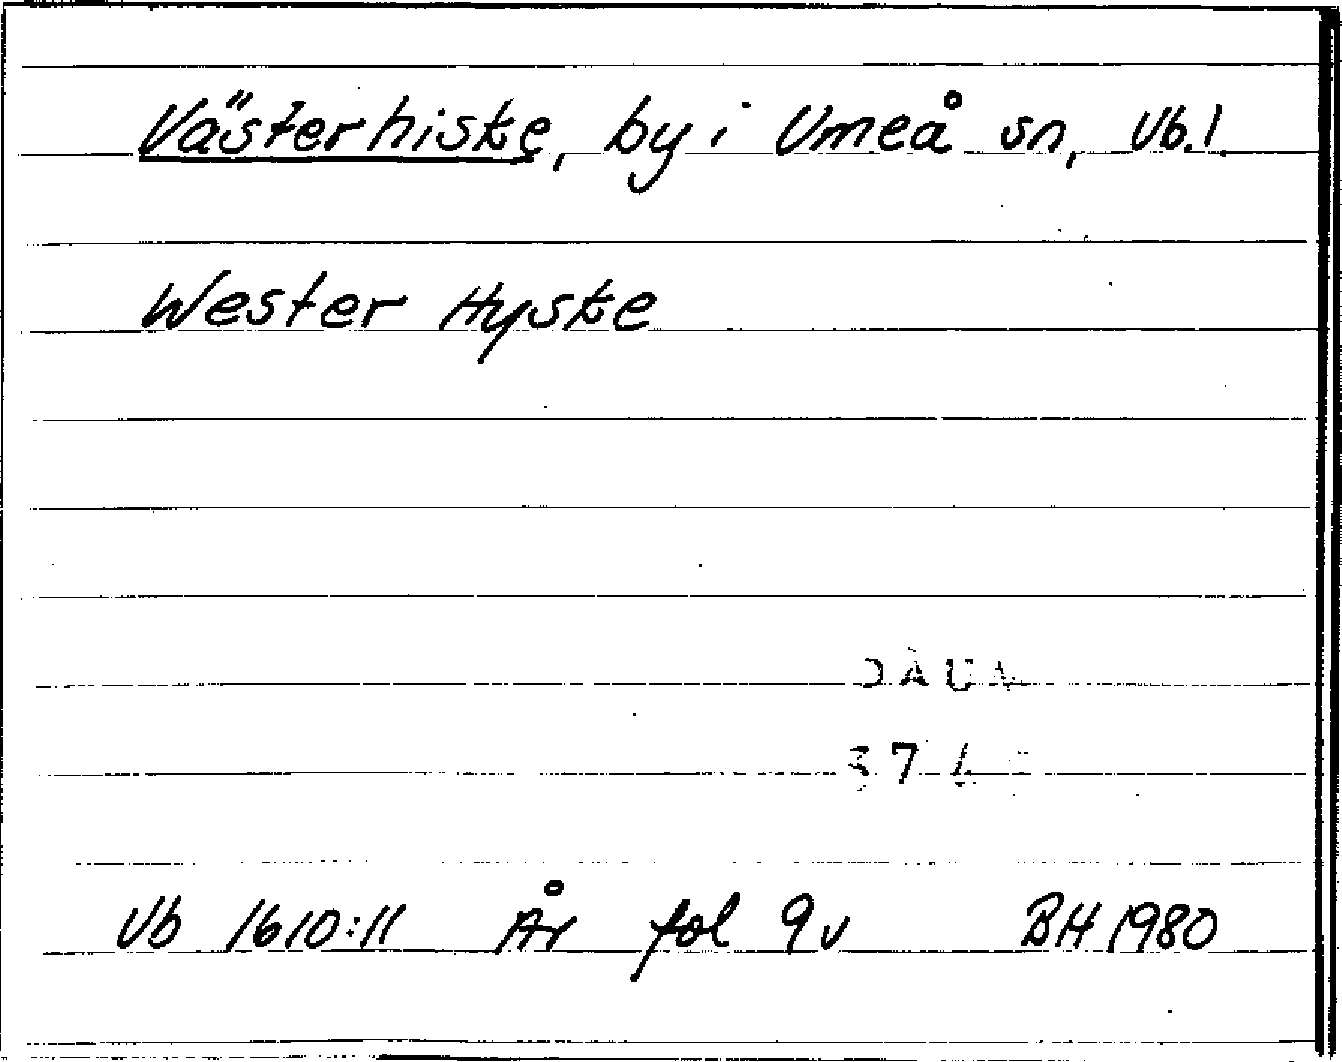 Västerhiske, by i Umeå sn, Vb.l.
Wester Hyske
DAUM
Vb 1610:11 År fol 9v BH 1980